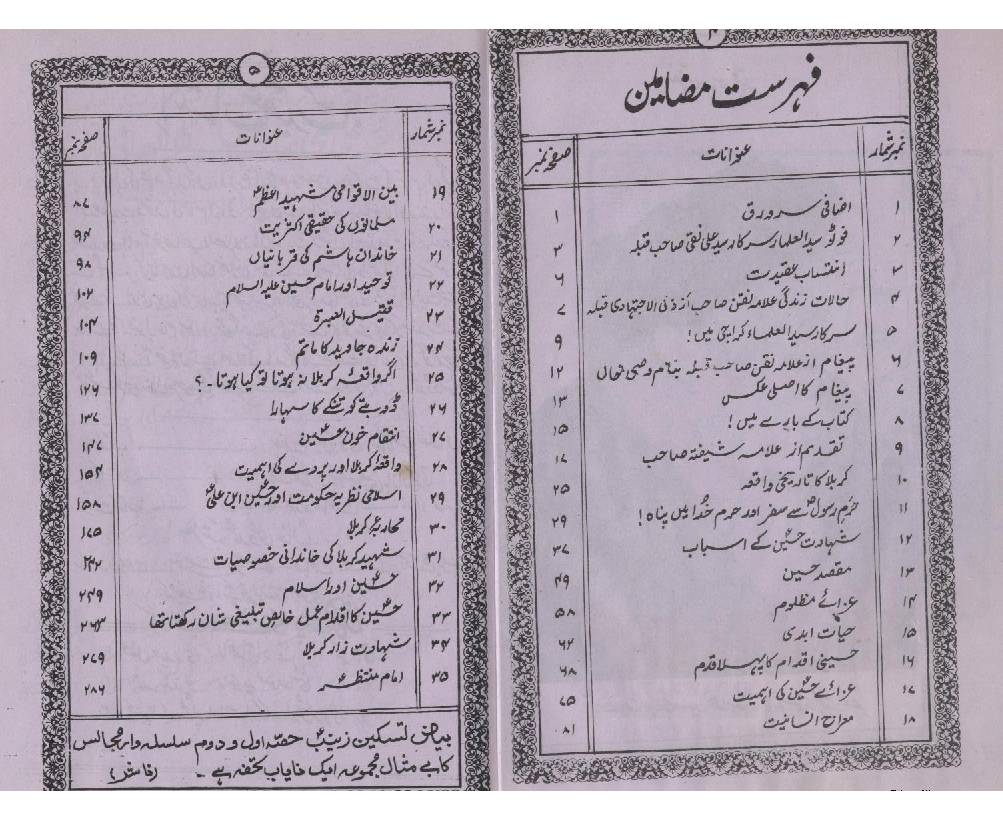 ۴
فہرست مضامین
نمبر شمار عنوانات صفحہ نمبر
۱ اضافی سرورق ۱
۲ فوٹو سید العلماء سرکار سید علی نقی صاحب قبلہ ۳
۳ انتساب عقیدت ۶
۴ حالات زندگی علامہ نقن صاحب الاجتہادی قبلہ ۷
۵ سرکار سید العلماء کراچی میں! ۹
۶ پیغام از علامہ نقن صاحب قبلہ بنام وصی خاں ۱۲
۷ پیغام کا اصلی عکس ۱۳
۸ کتاب کے بارے میں! ۱۵
۹ تقدیم از علامہ شیفتہ صاحب ۱۷
۱۰ کربلا کا تاریخی واقعہ ۲۵
۱۱ حرم رسولؐ سے سفر اور حرم خدا میں پناہ! ۲۹
۱۲ شہادت حسینؑ کے اسباب ۳۷
۱۳ مقصد حسین ۴۹
۱۴ عزائے مظلوم ۵۸
۱۵ حیات ابدی ۶۲
۱۶ حسینی اقدام کا پہلا قدم ۶۸
۱۷ عزائے حسینؑ کی اہمیت ۷۵
۱۸ معراج انسانیت ۸۱
۵
نمبر شمار عنوانات صفحہ نمبر
۱۹ بین الاقوامی شہید اعظمؑ ۸۷
۲۰ مسلمانوں کی حقیقی اکثریت ۹۴
۲۱ خاندان ہاشم کی قربانیاں ۹۸
۲۲ توحید اور امام حسین علیہ السلام ۱۰۲
۲۳ قتیل العبرۃ ۱۰۴
۲۴ زندہ جاوید کا ماتم ۱۰۹
۲۵ اگر واقعہ کربلا نہ ہوتا تو کیا ہوتا۔؟ ۱۲۶
۲۶ ڈوبتے کو تنکے کا سہارا ۱۳۷
۲۷ انتقام خون حسینؑ ۱۴۷
۲۸ واقعۂ کربلا اور پردے کی اہمیت ۱۵۴
۲۹ اسلامی نظریہ حکومت اور حسینؑ ابن علیؑ ۱۵۸
۳۰ محاربۂ کربلا ۱۷۵
۳۱ شہید کربلا کی خاندانی خصوصیات
۳۲ حسینؑ اور اسلام ۲۴۹
۳۳ حسینؑ کا اقدام عمل خالص تبلیغی شان رکھتا تھا ۲۶۳
۳۴ شہادت زار کربلا ۲۷۹
۳۵ امام منتظرؑ ۲۸۶
بیاض تسکین زینبؑ حصہ اول و دوم سلسلہ وار مجالس
کا بے مثال مجموعہ ایک نایاب تحفہ ہے۔ (ناشر)